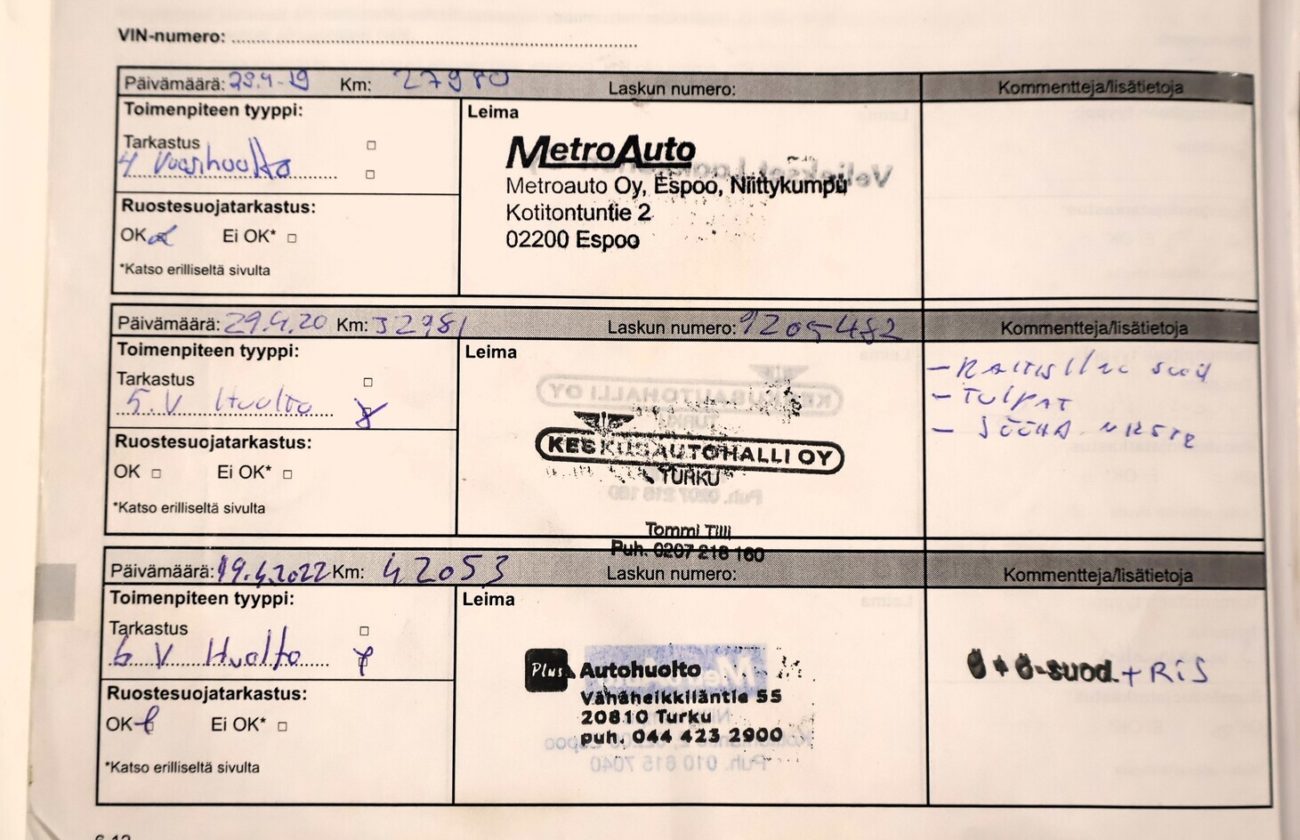 VIN-numero:
Päivämäärä: 29.4-19 Km: 27980 Laskun numero: Kommentteja/lisätietoja
Toimenpiteen tyyppi:
Leima
Tarkastus
4 Vuosihuolto
Ruostesuojatarkastus:
OK Ei OK*
*Katso erilliseltä sivulta
MetroAuto
Metroauto Oy, Espoo, Niittykumpu
Kotitontuntie 2
02200 Espoo
Päivämäärä: 29.4.20 Km: 32981 Laskun numero: 9205482 Kommentteja/lisätietoja
Toimenpiteen tyyppi:
Leima
Tarkastus
5.V Huolto
Ruostesuojatarkastus:
OK Ei OK*
*Katso erilliseltä sivulta
KESKUSAUTOHALLI OY
TURKU
Tommi Tilli
Puh. 0207 218 160
- TULPAT
Päivämäärä: 19.4.2022 Km: 42053 Laskun numero: Kommentteja/lisätietoja
Toimenpiteen tyyppi:
Leima
Tarkastus
6 V Huolto
Ruostesuojatarkastus:
OK Ei OK*
*Katso erilliseltä sivulta
Plus Autohuolto
Vähäheikkiläntie 55
20810 Turku
puh. 044 423 2900
Ö + Ö-suod. + RiS